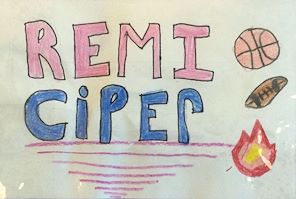 REMI
CiPER